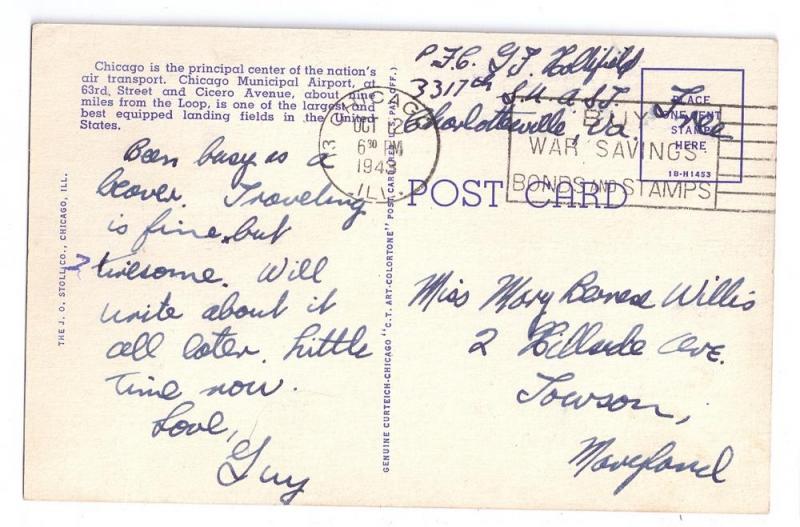 Chicago is the principal center of the nation's
air transport. Chicago Municipal Airport, at
63rd, Street and Cicero Avenue, about nine
miles from the Loop, is one of the largest and
best equipped landing fields in the United
States.
Been busy as a
beaver. Traveling
is fine but
tiresome. Will
write about it
all later. Little
time now.
Love,
Guy
THE J. O. STOLL CO., CHICAGO, ILL.
GENUINE CURTEICH-CHICAGO "C.T. ART-COLORTONE" POST CARD (REG. U.S. PAT. OFF.)
P.F.C. G.F. Hollifield
3317th S.U. A.S.T.
Charlottesville, Va.
Free
CHICAGO
OCT 2
6 30 PM
1943
ILL.
BUY
WAR SAVINGS
BONDS AND STAMPS
PLACE
ONE CENT
STAMP
HERE
1B-H1453
POST CARD
Miss Mary Bernese Willis
2 Hillside Ave.
Towson,
Maryland